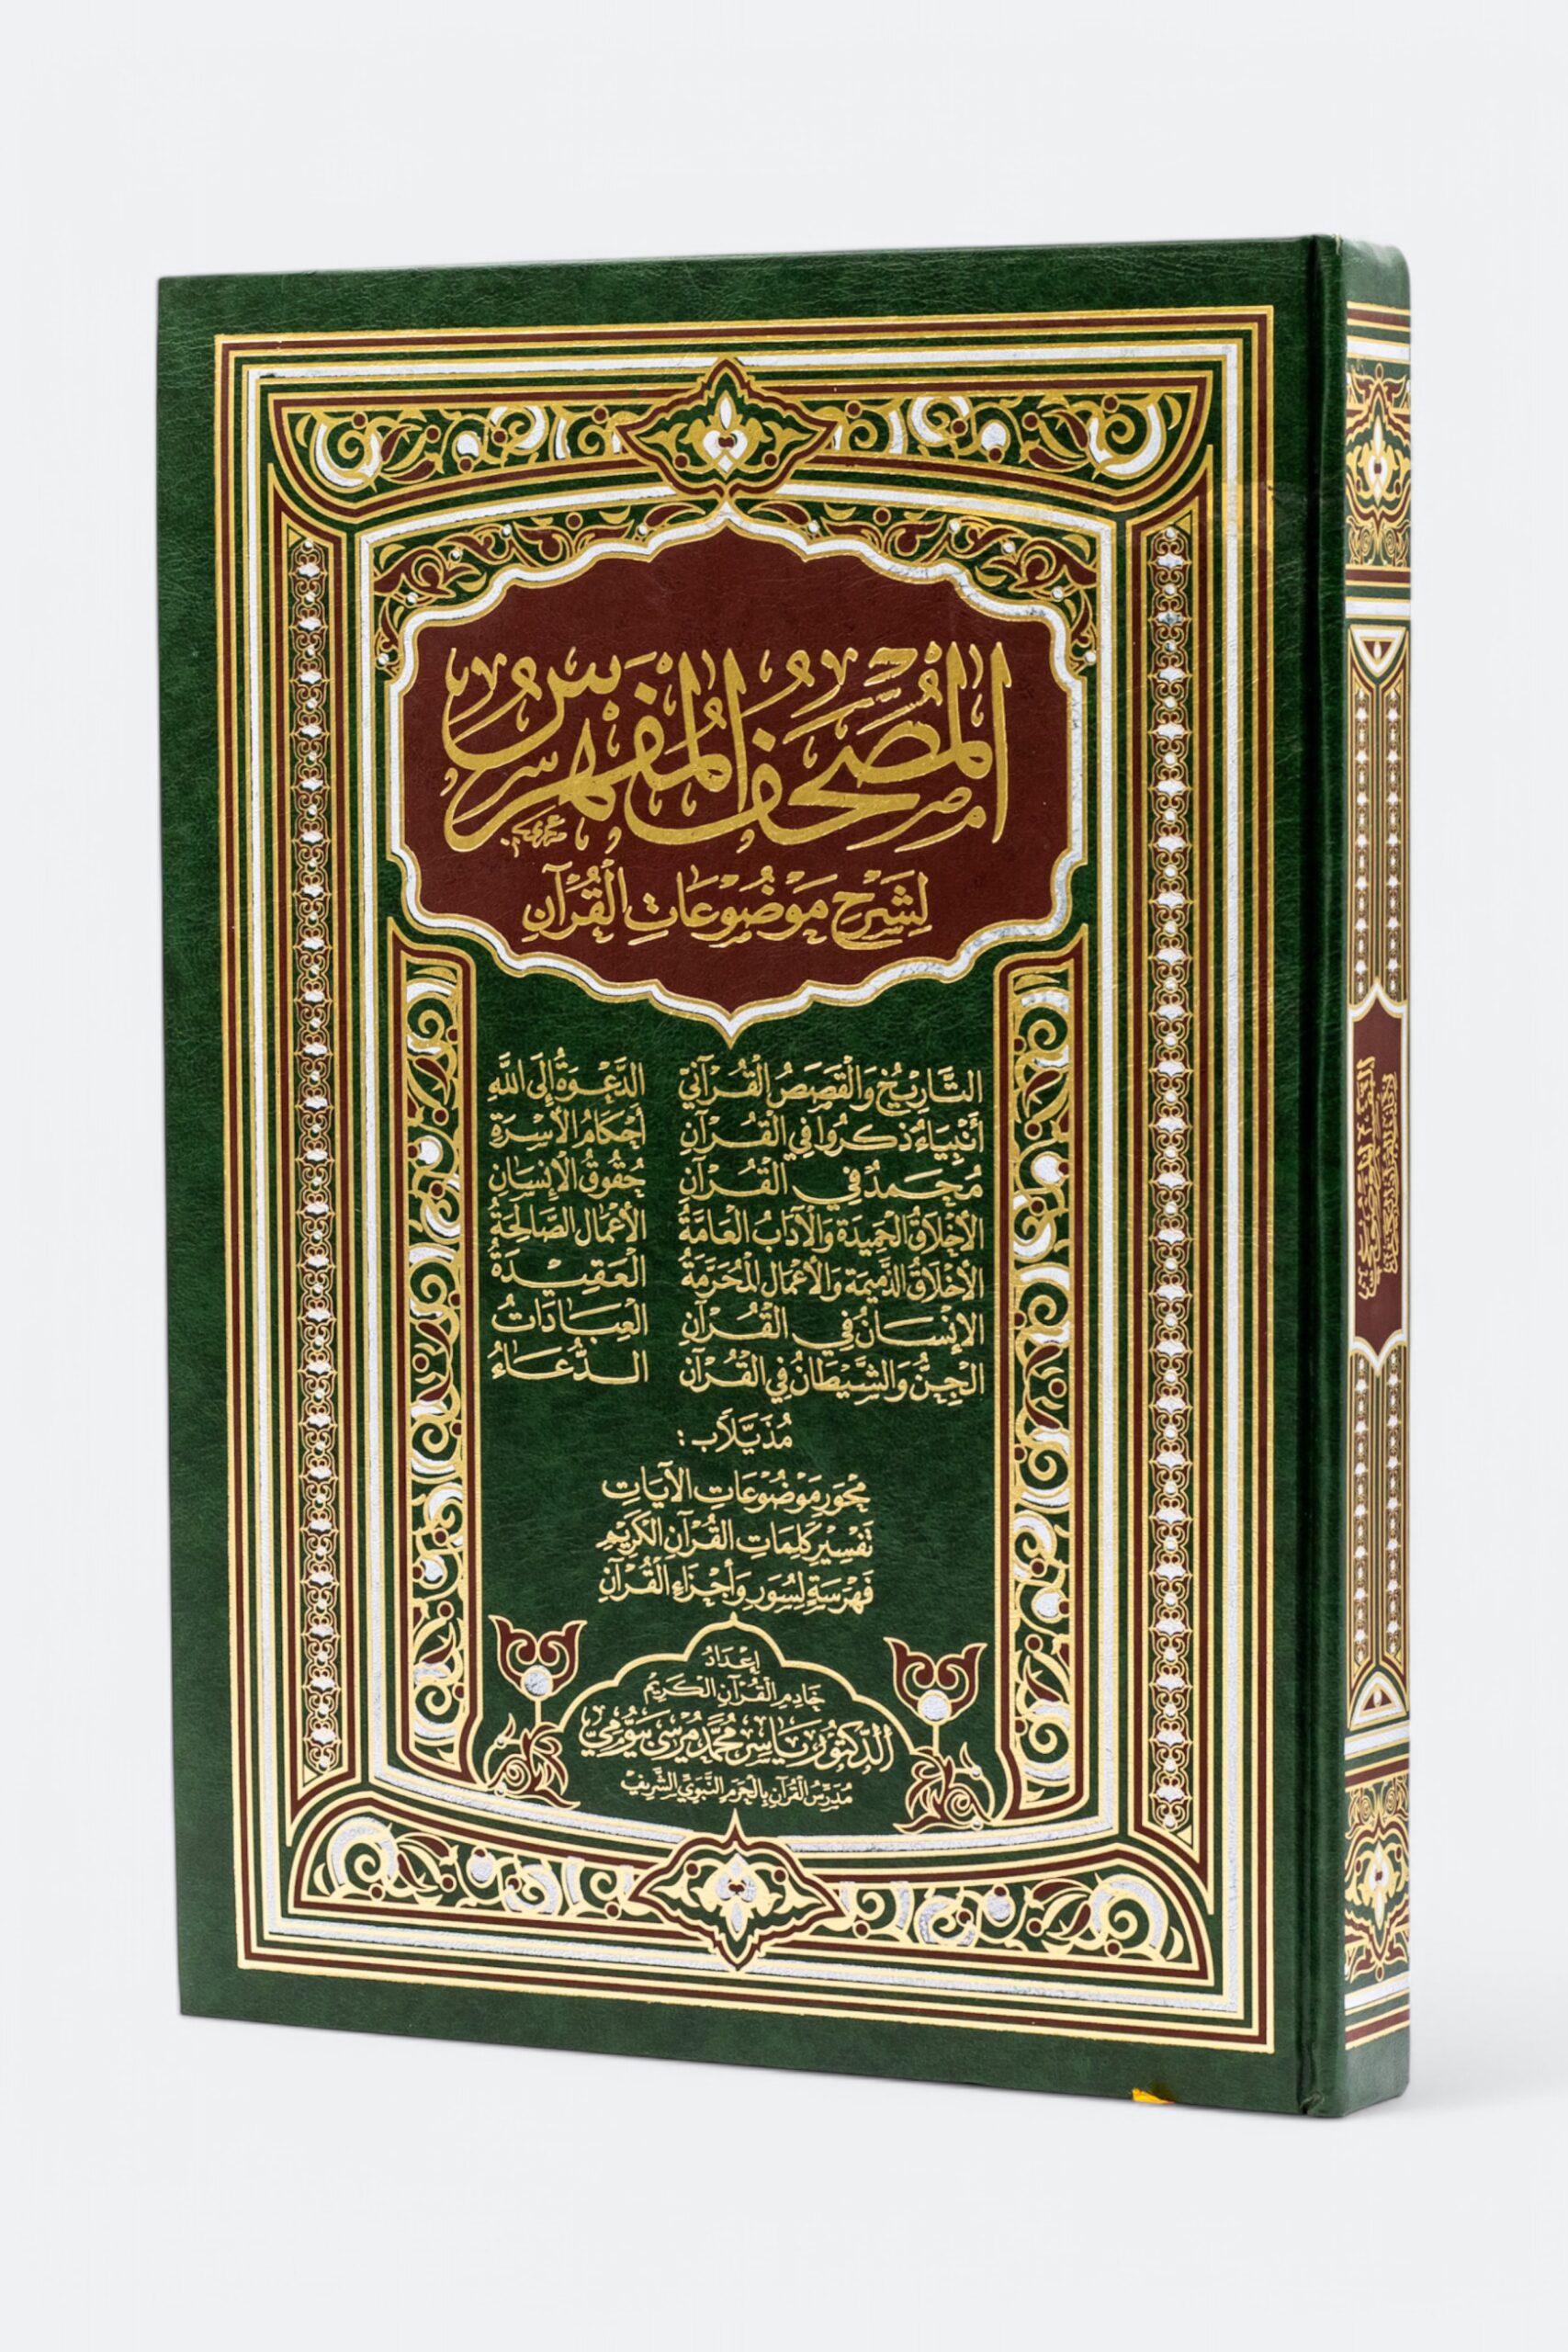 المُصْحَفُ المُفَهْرَسُ
لِشَرْحِ مَوْضُوعَاتِ القُرْآنِ
التَّارِيْخُ وَالْقَصَصُ الْقُرْآنِيّ
أَنْبِيَاءُ ذُكِرُوا فِي الْقُرْآنِ
مُحَمَدٌ فِي الْقُرْآنِ
الأَخْلَاقُ الْحَمِيدَة وَالْآدَابُ الْعَامَّةُ
الأَخْلَاقُ الذَّمِيمَة وَالأَعْمَال الْمُحَرَّمَةُ
الإِنْسَانُ فِي الْقُرْآنِ
الْجِنُّ وَالشَّيْطَانُ فِي الْقُرْآنِ
الدَّعْوَةُ إِلَى اللَّهِ
أَحْكَامُ الأُسْرَةِ
حُقُوقُ الْإِنسَان
الأَعْمَال الصَّالِحَةُ
الْعَقِيْدَةُ
الْعِبَادَاتُ
الدُّعَاءُ
مُذَيَّلاً ب :
مِحْوَر مَوْضُوْعَاتِ الآيَاتِ
تَفْسِيْر كَلِمَاتِ القُرْآنِ الكَرِيْمِ
فَهْرَسَةٍ لِسُوَرِ وَأَجْزَاءِ القُرْآنِ
إِعْدَادُ
خَادِمِ الْقُرْآنِ الْكَرِيْمُ
الدَّكْتُوْر يَاسِر مُحَمَّد مُرْسِي بَيُّوْمِيّ
مُدَرِّسُ الْقُرْآنِ بِالْحَرَمِ النَّبَوِيِّ الشَّرِيْفْ